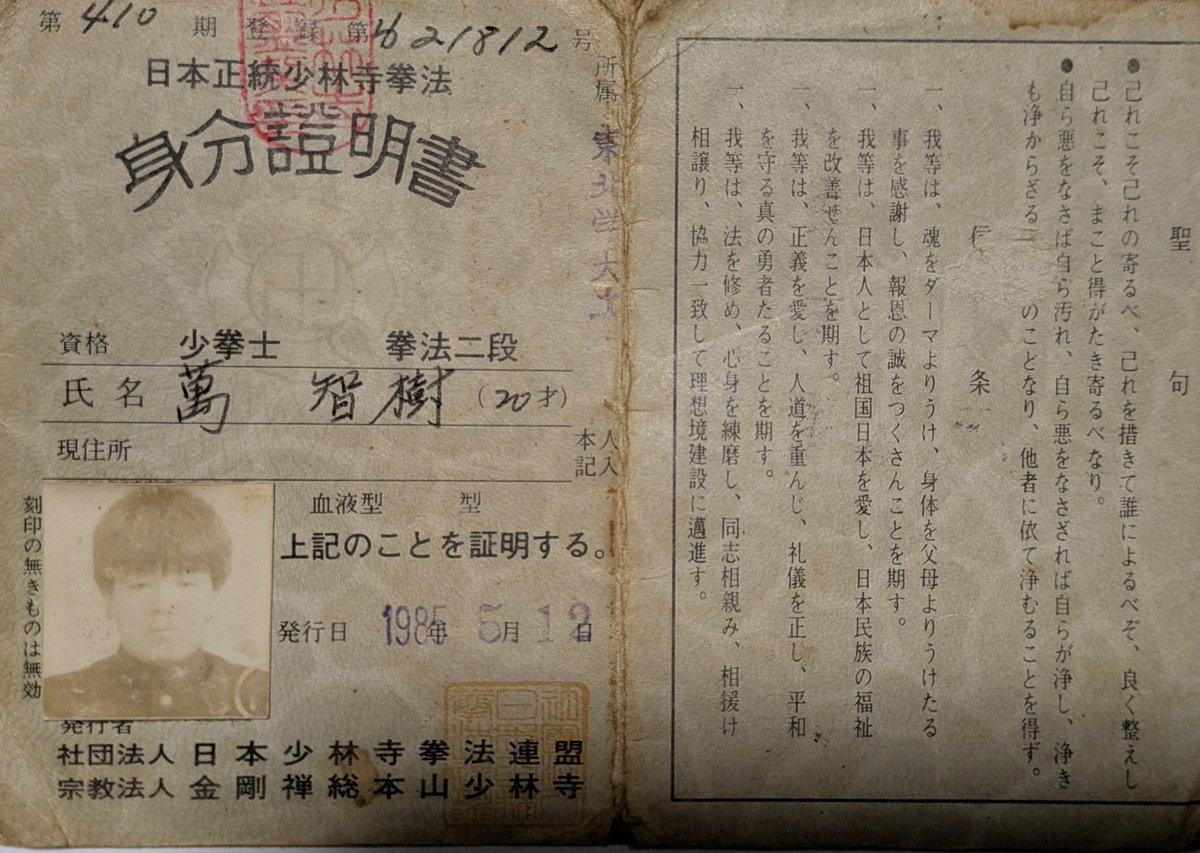 第410期登録第621812号
日本正統少林寺拳法
身分證明書
所属 東北学大
資格 少拳士 拳法二段
氏名 萬 智樹 (20才)
現住所
本人記入
血液型 型
上記のことを証明する。
発行日 1985年5月12日
刻印の無きものは無効
発行者
社団法人 日本少林寺拳法連盟
宗教法人 金剛禅総本山少林寺
聖句
●己れこそ己れの寄るべ、己れを措きて誰によるべぞ、良く整えし
己れこそ、まこと得がたき寄るべなり。
●自ら悪をなさば自ら汚れ、自ら悪をなさざれば自らが浄し、浄き
も浄からざる のことなり、他者に依て浄むることを得ず。
信条
一、我等は、魂をダーマよりうけ、身体を父母よりうけたる
事を感謝し、報恩の誠をつくさんことを期す。
一、我等は、日本人として祖国日本を愛し、日本民族の福祉
を改善せんことを期す。
一、我等は、正義を愛し、人道を重んじ、礼儀を正し、平和
を守る真の勇者たることを期す。
一、我等は、法を修め、心身を練磨し、同志相親み、相援け
相譲り、協力一致して理想境建設に邁進す。